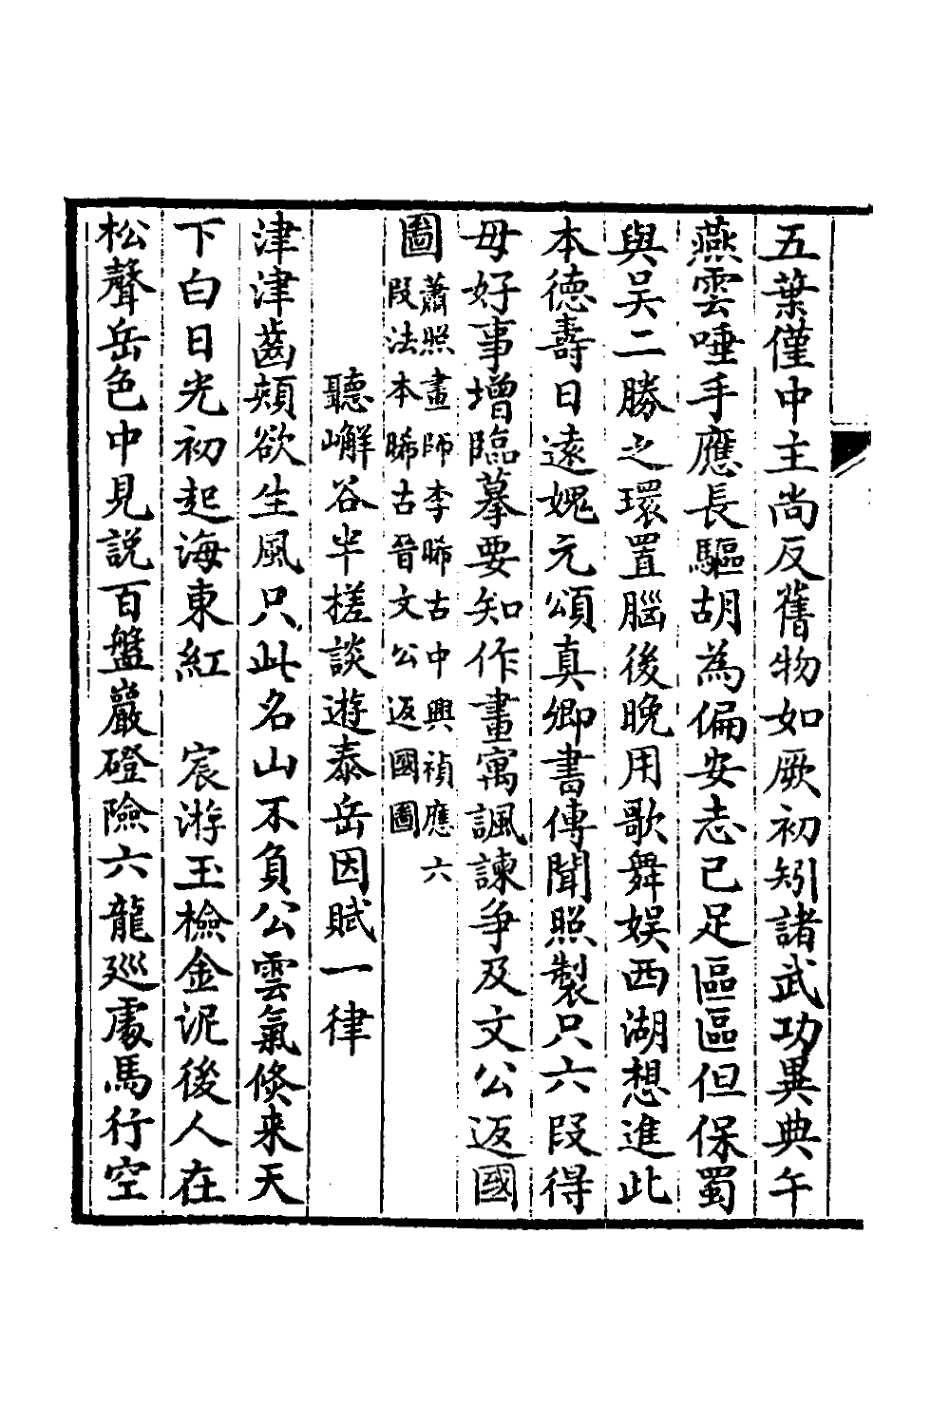 五葉僅中主尚反舊物如厥初矧諸武功異典午
燕雲唾手應長驅胡為偏安志已足區區但保蜀
與吳二勝之環置腦後晚用歌舞娯西湖想進此
本德壽日遠媿元頌真卿書傳聞照製只六段得
毋好事增臨摹要知作畫寓諷諫爭及文公返國
圖蕭照畫師李晞古中興禎應六
段法本晞古晉文公返國圖
聽嶰谷半槎談遊泰岳因賦一律
津津齒頰欲生風只此名山不負公雲氣倐来天
下白日光初起海東紅 宸游玉檢金泥後人在
松聲岳色中見説百盤巖磴險六龍廵處馬行空